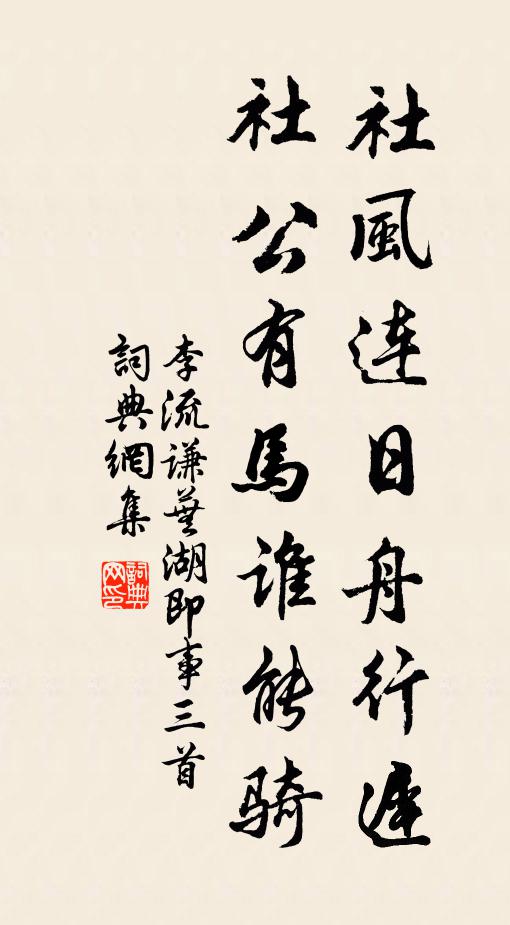 社風連日舟行遲
社公有馬誰能騎
李流謙蕪湖即事三首
詞典網集
詞典网印